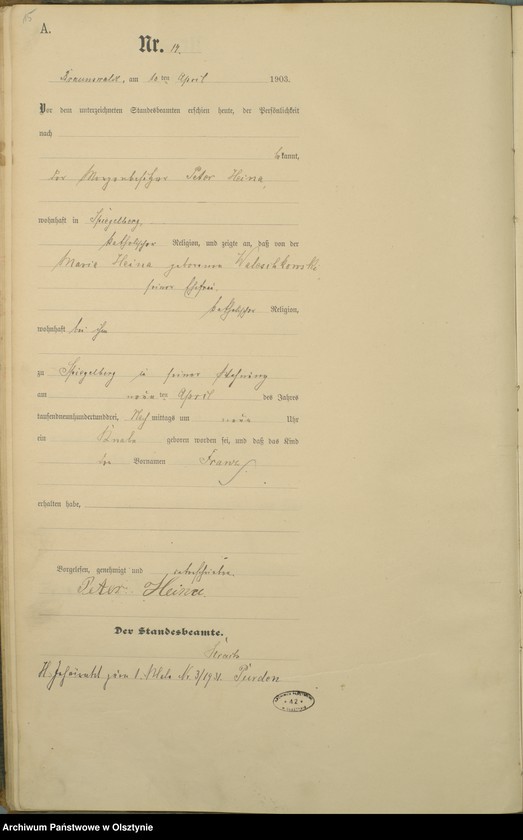 A.
Nr. 19.
am 10 ten April 1903.
Vor dem unterzeichneten Standesbeamten erschien heute, der Persönlichkeit
nach
bekannt,
der Peter Heina,
wohnhaft in Spiegelberg,
katholischer Religion, und zeigte an, daß von der
Maria Heina geborenen
seiner Ehefrau
katholischer Religion,
wohnhaft bei ihm
zu Spiegelberg in seiner Wohnung
am neun ten April des Jahres
tausendneunhundertunddrei, Nachmittags um neun Uhr
ein Knabe geboren worden sei, und daß das Kind
den Vornamen Franz
erhalten habe.
Vorgelesen, genehmigt und unterschrieben.
Peter Heina
Der Standesbeamte.
H. Geheiratet zum 1. Male Nr. 3/1931 Purdon
Archiwum Państwowe w Olsztynie